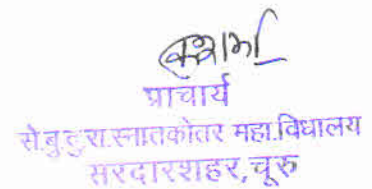 प्राचार्य
से.बु.दु.रा.स्नातकोतर महा.विधालय
सरदारशहर,चूरु